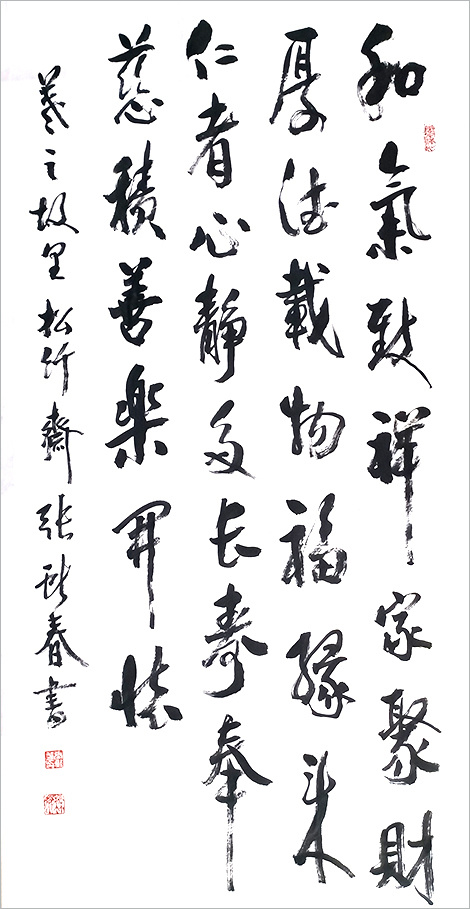 和氣致祥家聚財
厚德載物福緣来
仁者心靜多长壽奉
慈積善樂開懷
羲之故里松竹齋張春書